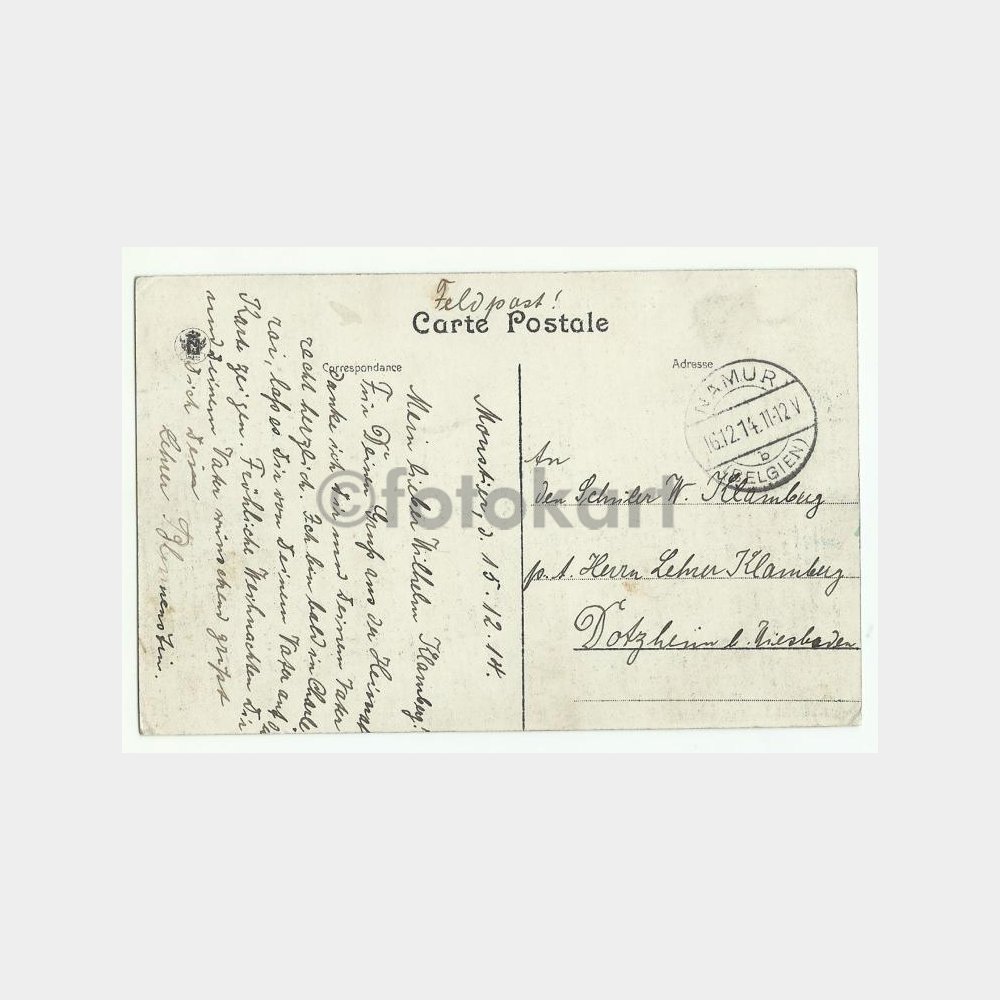 Feldpost!
Carte Postale
Correspondance
Adresse
NAMUR
16.12.14.11-12V
b
(BELGIEN)
Moustier, d. 15.12.14.
Mein lieber Wilhelm Klamberg!
Für Deinen Gruß aus der Heimat
danke ich Dir und Deinem Vater
recht herzlich. Ich bin bald in Charle
roi, laß es Dir von Deinem Vater auf
Karte zeigen. Fröhliche Weihnachten Dir
und Deinem Vater wünschend grüßt
Dich Dein
Lehrer
An
den Schüler W. Klamberg
p. A. Herrn Lehrer Klamberg
Dotzheim b. Wiesbaden
©fotokarl